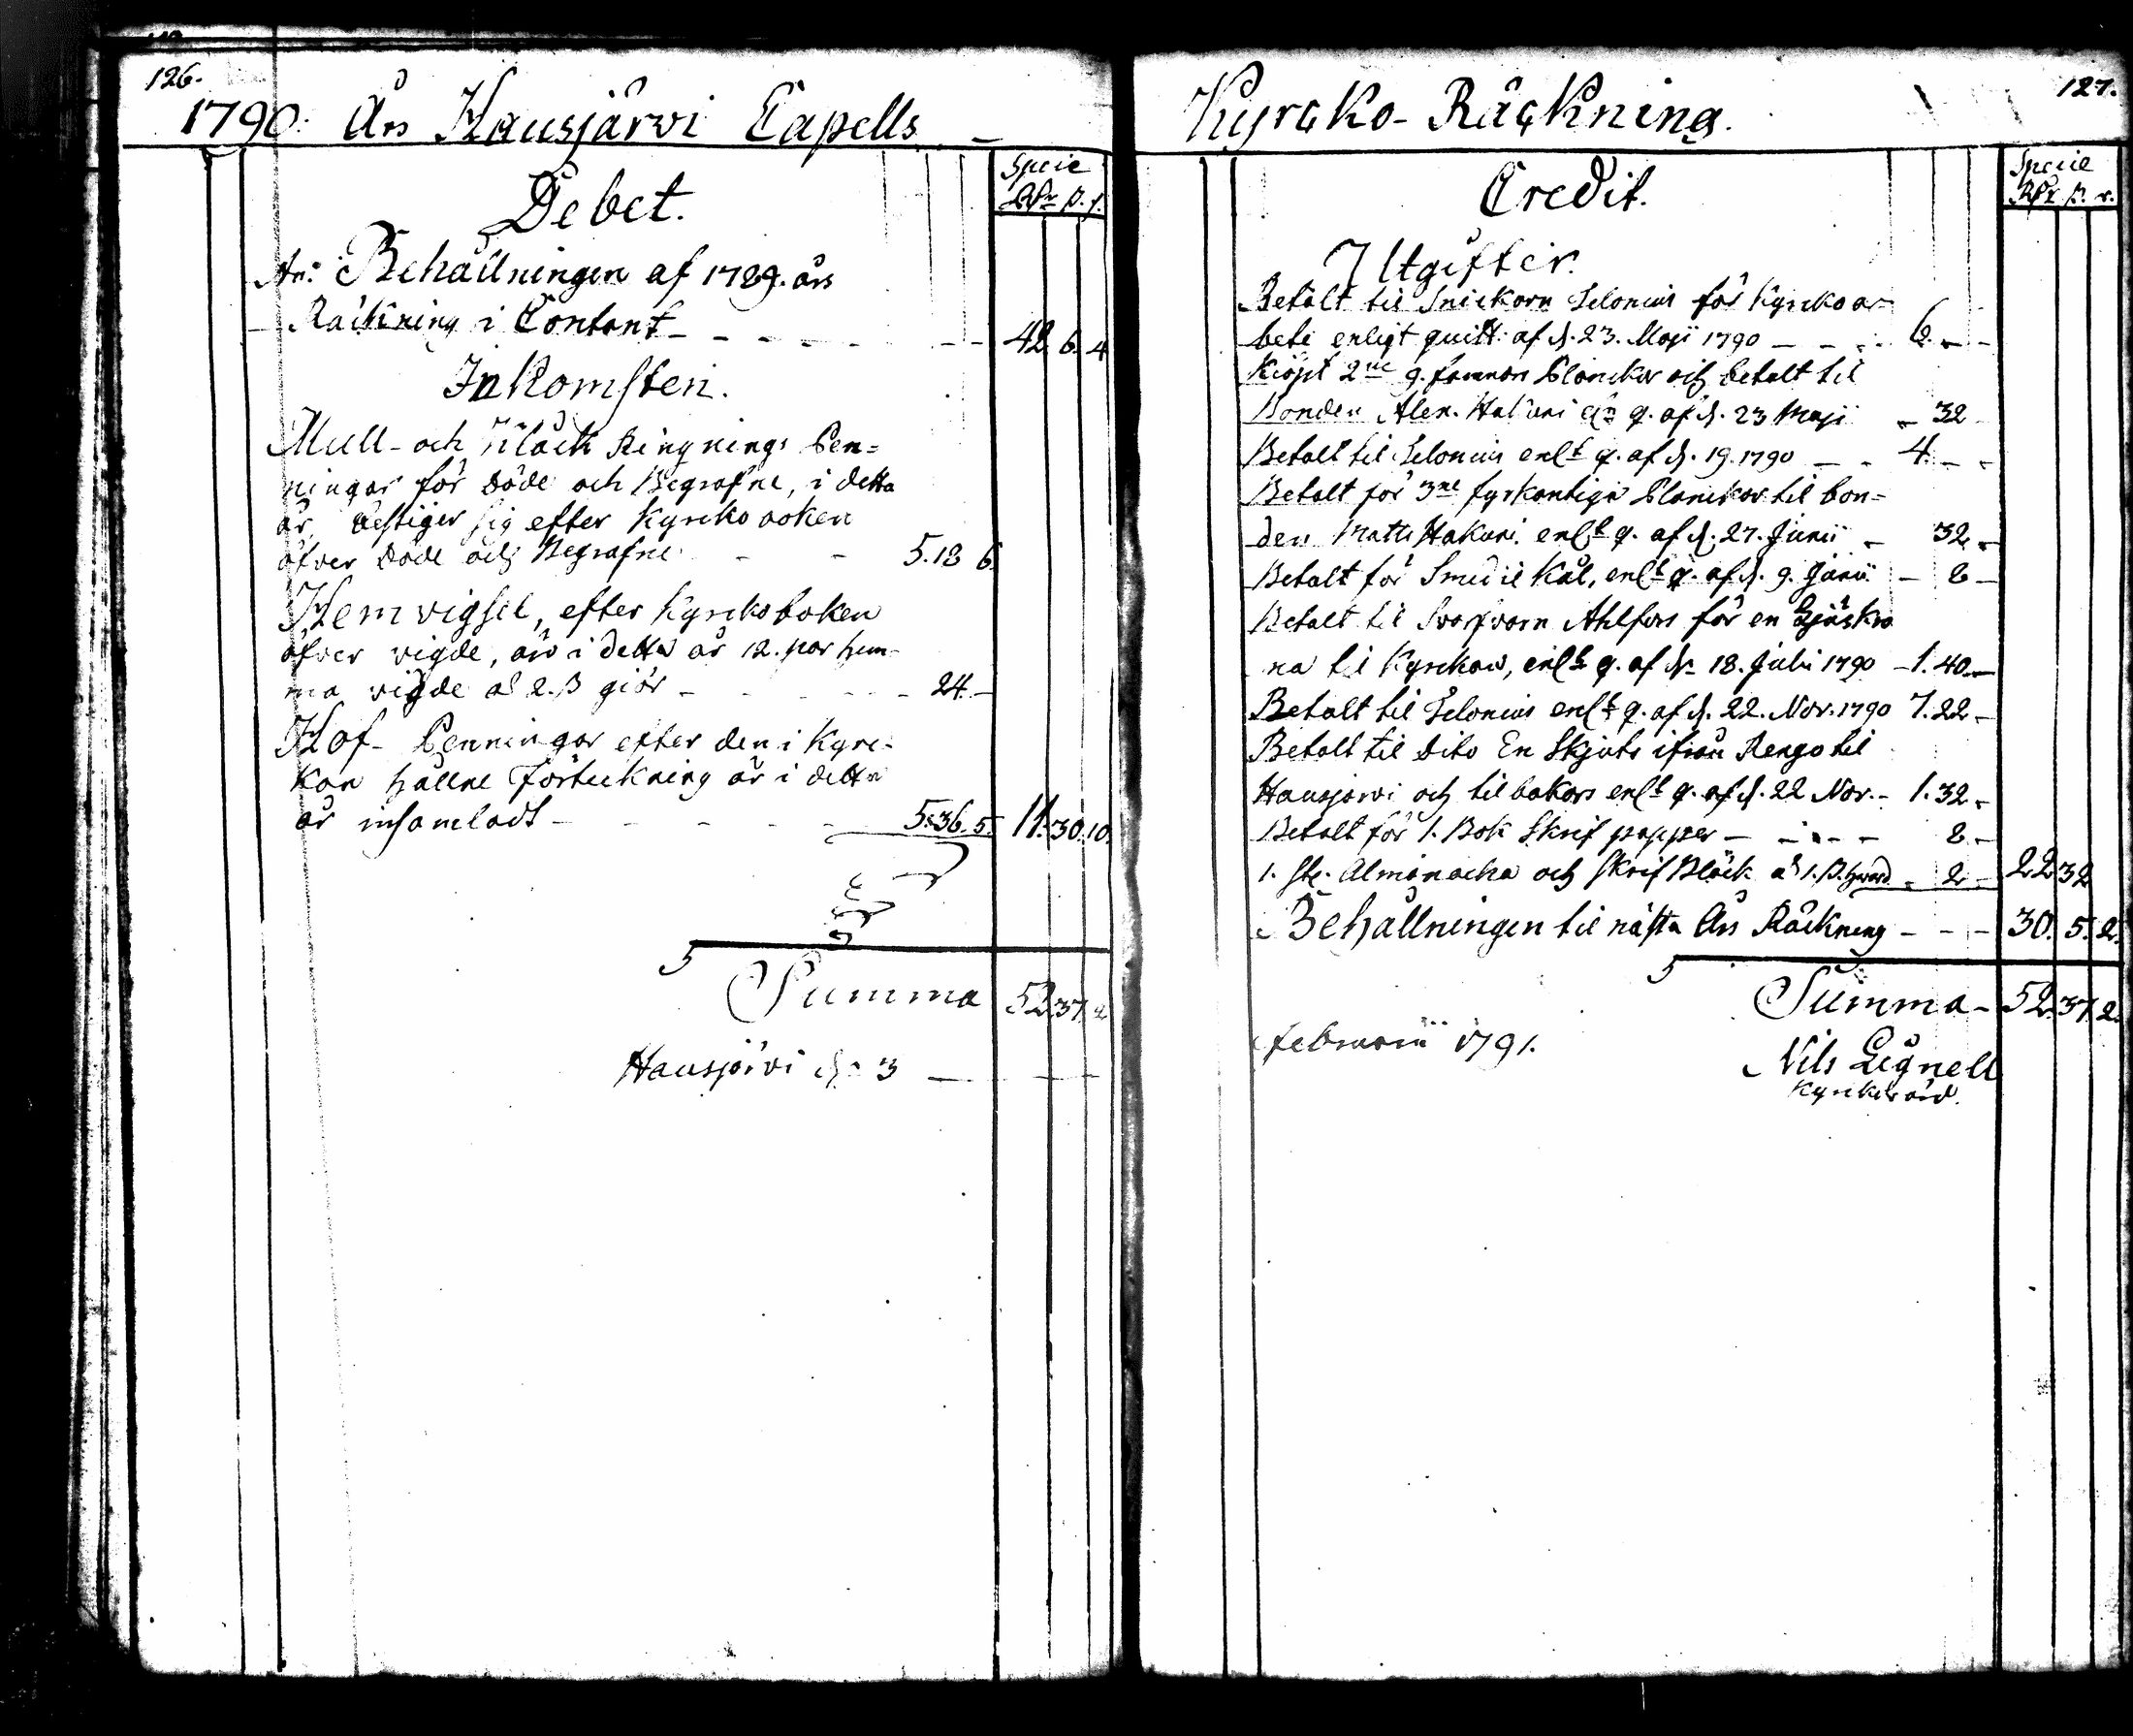 126.
1790. Års Hausjärvi Capells
Specie
Rdr ß. r.
Debet.
An: Behållningen af 1789. års
Räckning i Contant - - - - - 42. 6. 4
Inkomsten.
Mull- och Klåck Ringnings Pen=
ningar för Döde och Begrafne, i detta
år bestiger sig efter Kyrckobooken
öfver Döde och Begrafne - - 5. 18 6.
Hemvigsel, efter Kyrckoboken
öfver vigde, äro i detta år 12. par hem-
ma vigde a 2. ß giör - - - - 24. -
Håf- Penningar efter den i Kyrc-
kan hållne Förteckning är i detta
år insamladt - - - - 5. 36. 5. 11. 30. 10.
Summa 52. 37. 2
Hausjärvi d. 3
127.
Kyrcko-Räckning.
Specie
Rdr ß. r.
Credit.
Utgifter.
Betalt til Snickarn Selonius för Kyrckoar-
bete enligt quitt: af d. 23. Maji 1790 - - - 6. - -
Kiöpt 2ne q. famnars Planckor och betalt til
Bonden Alex. Hakuni q. af d. 23 Maji - 32 -
Betalt til Selonius enlt q. af d. 19. 1790 - - 4. - -
Betalt för 3ne fyrkantiga Planckor til bon=
den Matts Hakuni enlt q. af d. 27. Junii - 32 -
Betalt för Smedie Kål, enlt q. af d. 9. Junii - 8 -
Betalt til Svarfvarn Ahlfors för en Ljuskro
na til Kyrckan, enlt q. af d. 18. Julii 1790 - 1. 40. -
Betalt til Selonius enlt q. af d. 22. Nov. 1790 7. 22 -
Betalt til Dito En Skjuts ifrån Rengo til
Hausjärvi och tilbakars enlt q. af d. 22 Nov. - 1. 32. -
Betalt för 1. Bok Skrif papper - - - - 8 -
1. St. Almanacka och Skrif Bläck a 1. ß. hvard - 2 - 22 32
Behållningen til nästa Års Räckning - - - 30. 5. 2.
Summa - 52. 37. 2.
Februarii 1791.
Nils Lignell
Kyrckovärd.